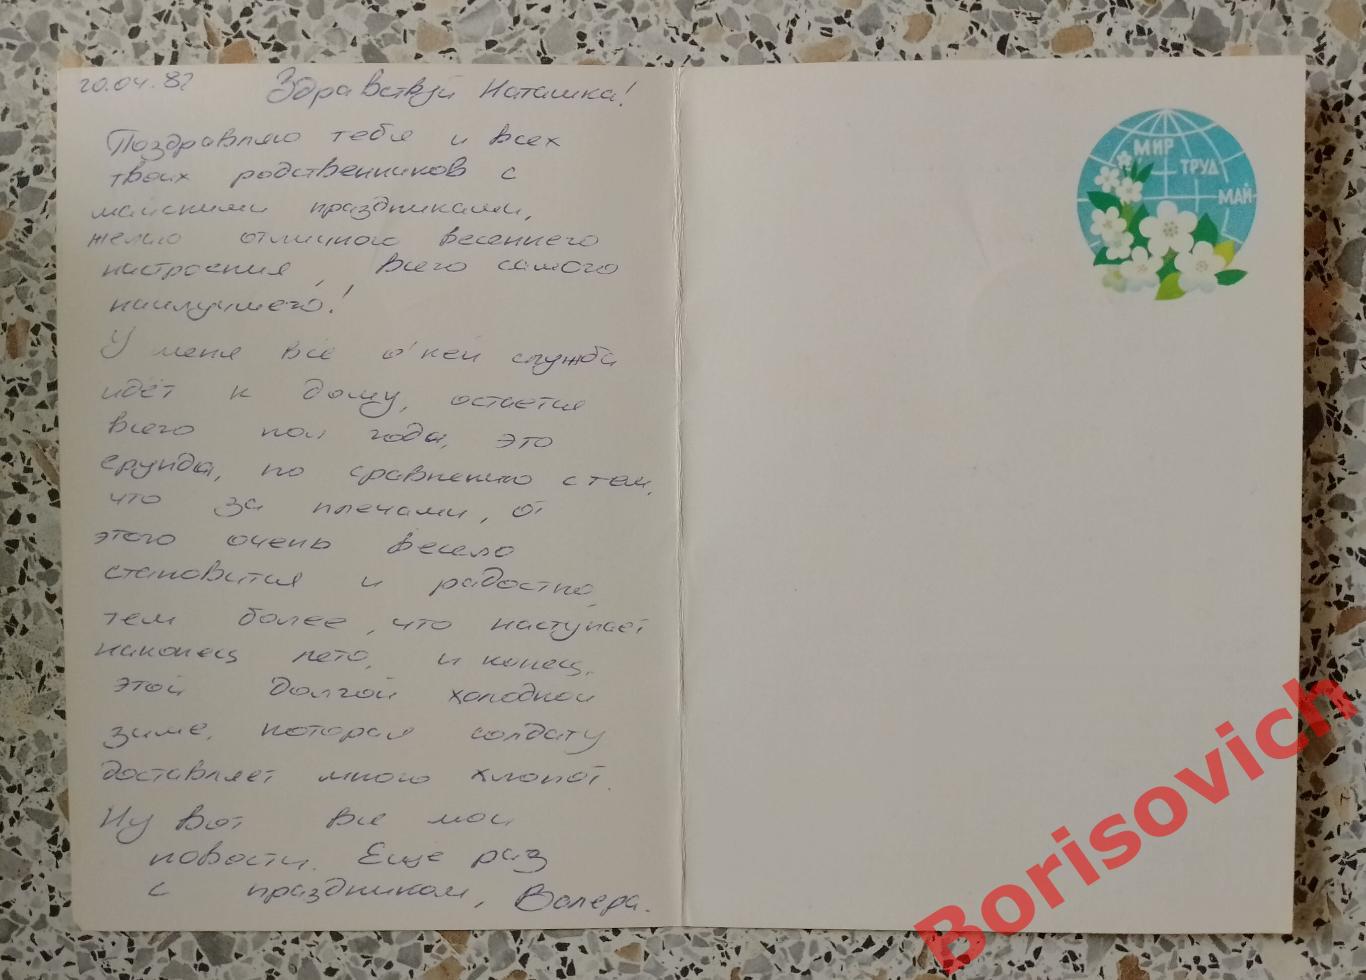 20.04.82 Здравствуй Наташка!
Поздравляю тебя и всех
твоих родственников с
майскими праздниками,
желаю отличного весеннего
настроения, всего самого
наилучшего!
У меня всё о'кей служба
идёт к дому, остаётся
всего пол года, это
ерунда, по сравнению с тем,
что за плечами, от
этого очень весело
становится и радостно,
тем более, что наступает
наконец лето, и конец
этой долгой холодной
зиме, которая солдату
доставляет много хлопот.
Ну вот все мои
новости. Ещё раз
с праздником, Валера.
МИР
ТРУД
МАЙ
Borisovich